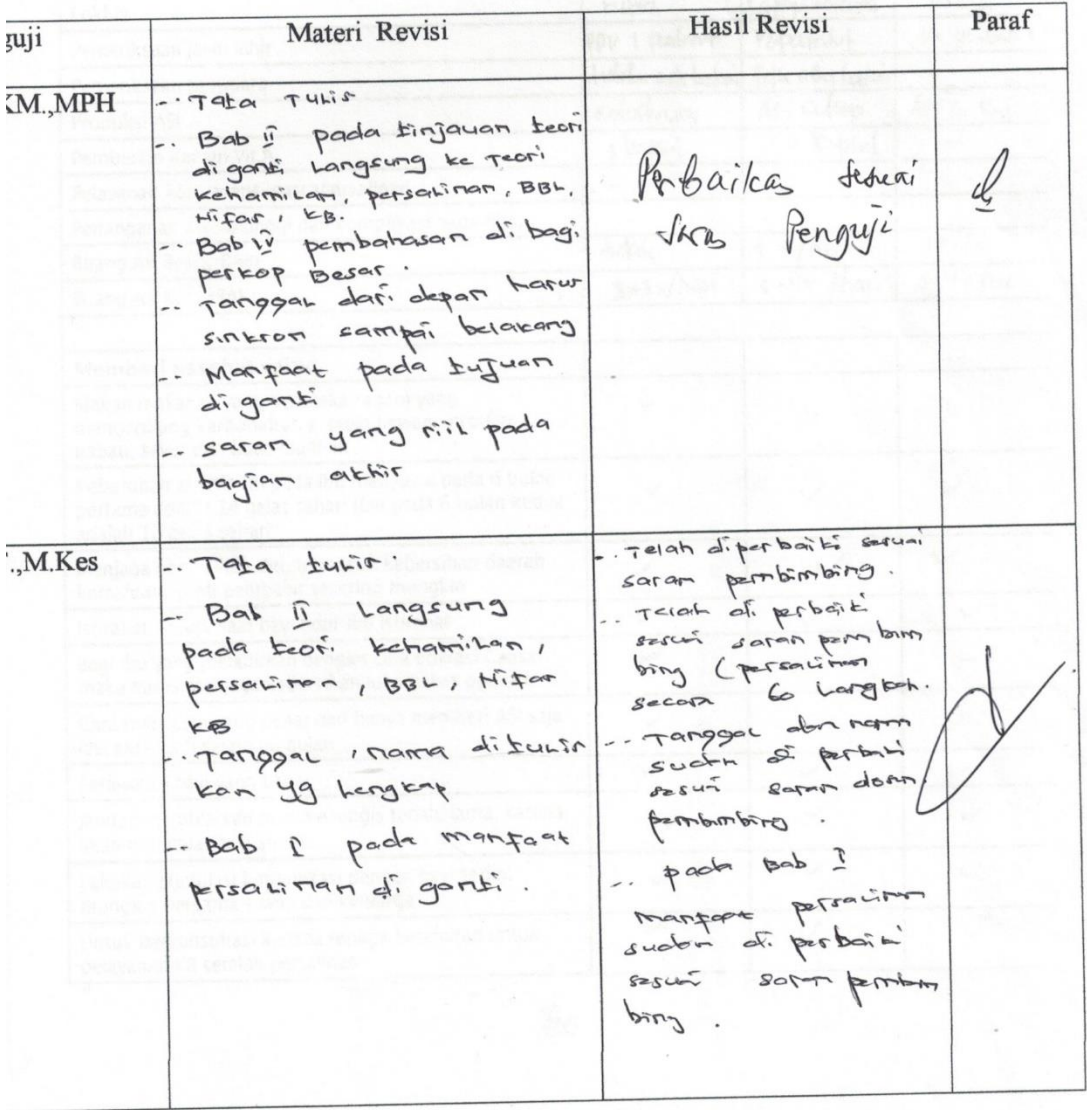 guji Materi Revisi Hasil Revisi Paraf
KM.,MPH
-. Tata Tulis
-. Bab ii pada tinjauan teori
di ganti Langsung ke Teori
kehamilan, persalinan, BBL,
Nifas, KB.
-. Bab iv pembahasan di bagi
perkop Besar
-. Tanggal dari depan harus
sinkron sampai belakang
-. Manfaat pada tujuan
di ganti
-. saran yang riil pada
bagian akhir
Perbaikas sesuai
saras Penguji
.,M.Kes
-. Tata tulis.
-. Bab ii Langsung
pada teori kehamilan,
persalinan, BBL, Nifas
KB
-. Tanggal, nama di tulis
kan yg lengkap
- Bab i pada manfaat
persalinan di ganti.
- Telah di perbaiki sesuai
saran pembimbing.
-. Telah di perbaiki
sesuai saran pem bim
bing (persalinan
secara 60 langkah.
-. Tanggal dan nama
sudah di perbaiki
sesuai saran doan
pembimbing.
-. pada Bab i
manfaat persalinan
sudah di perbaiki
sesuai saran pembim
bing.